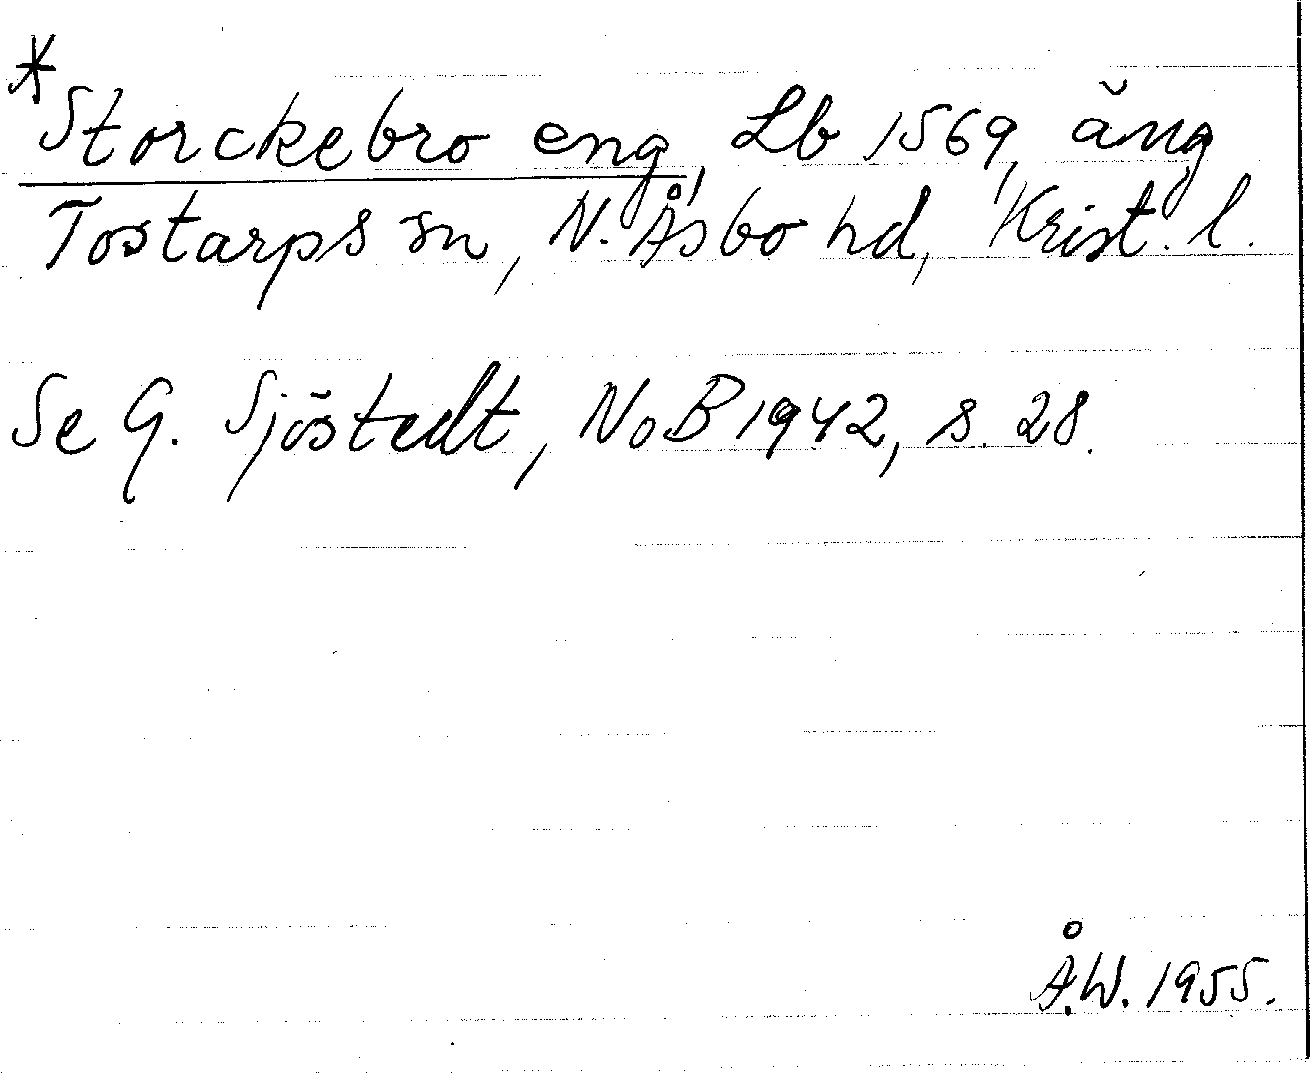 *
Storckebro eng, Lb 1569, äng
Tostarps sn, N. Åsbo hd, Krist. l.
Se G. Sjöstedt, NoB 1942, s. 28.
Å.W. 1955.